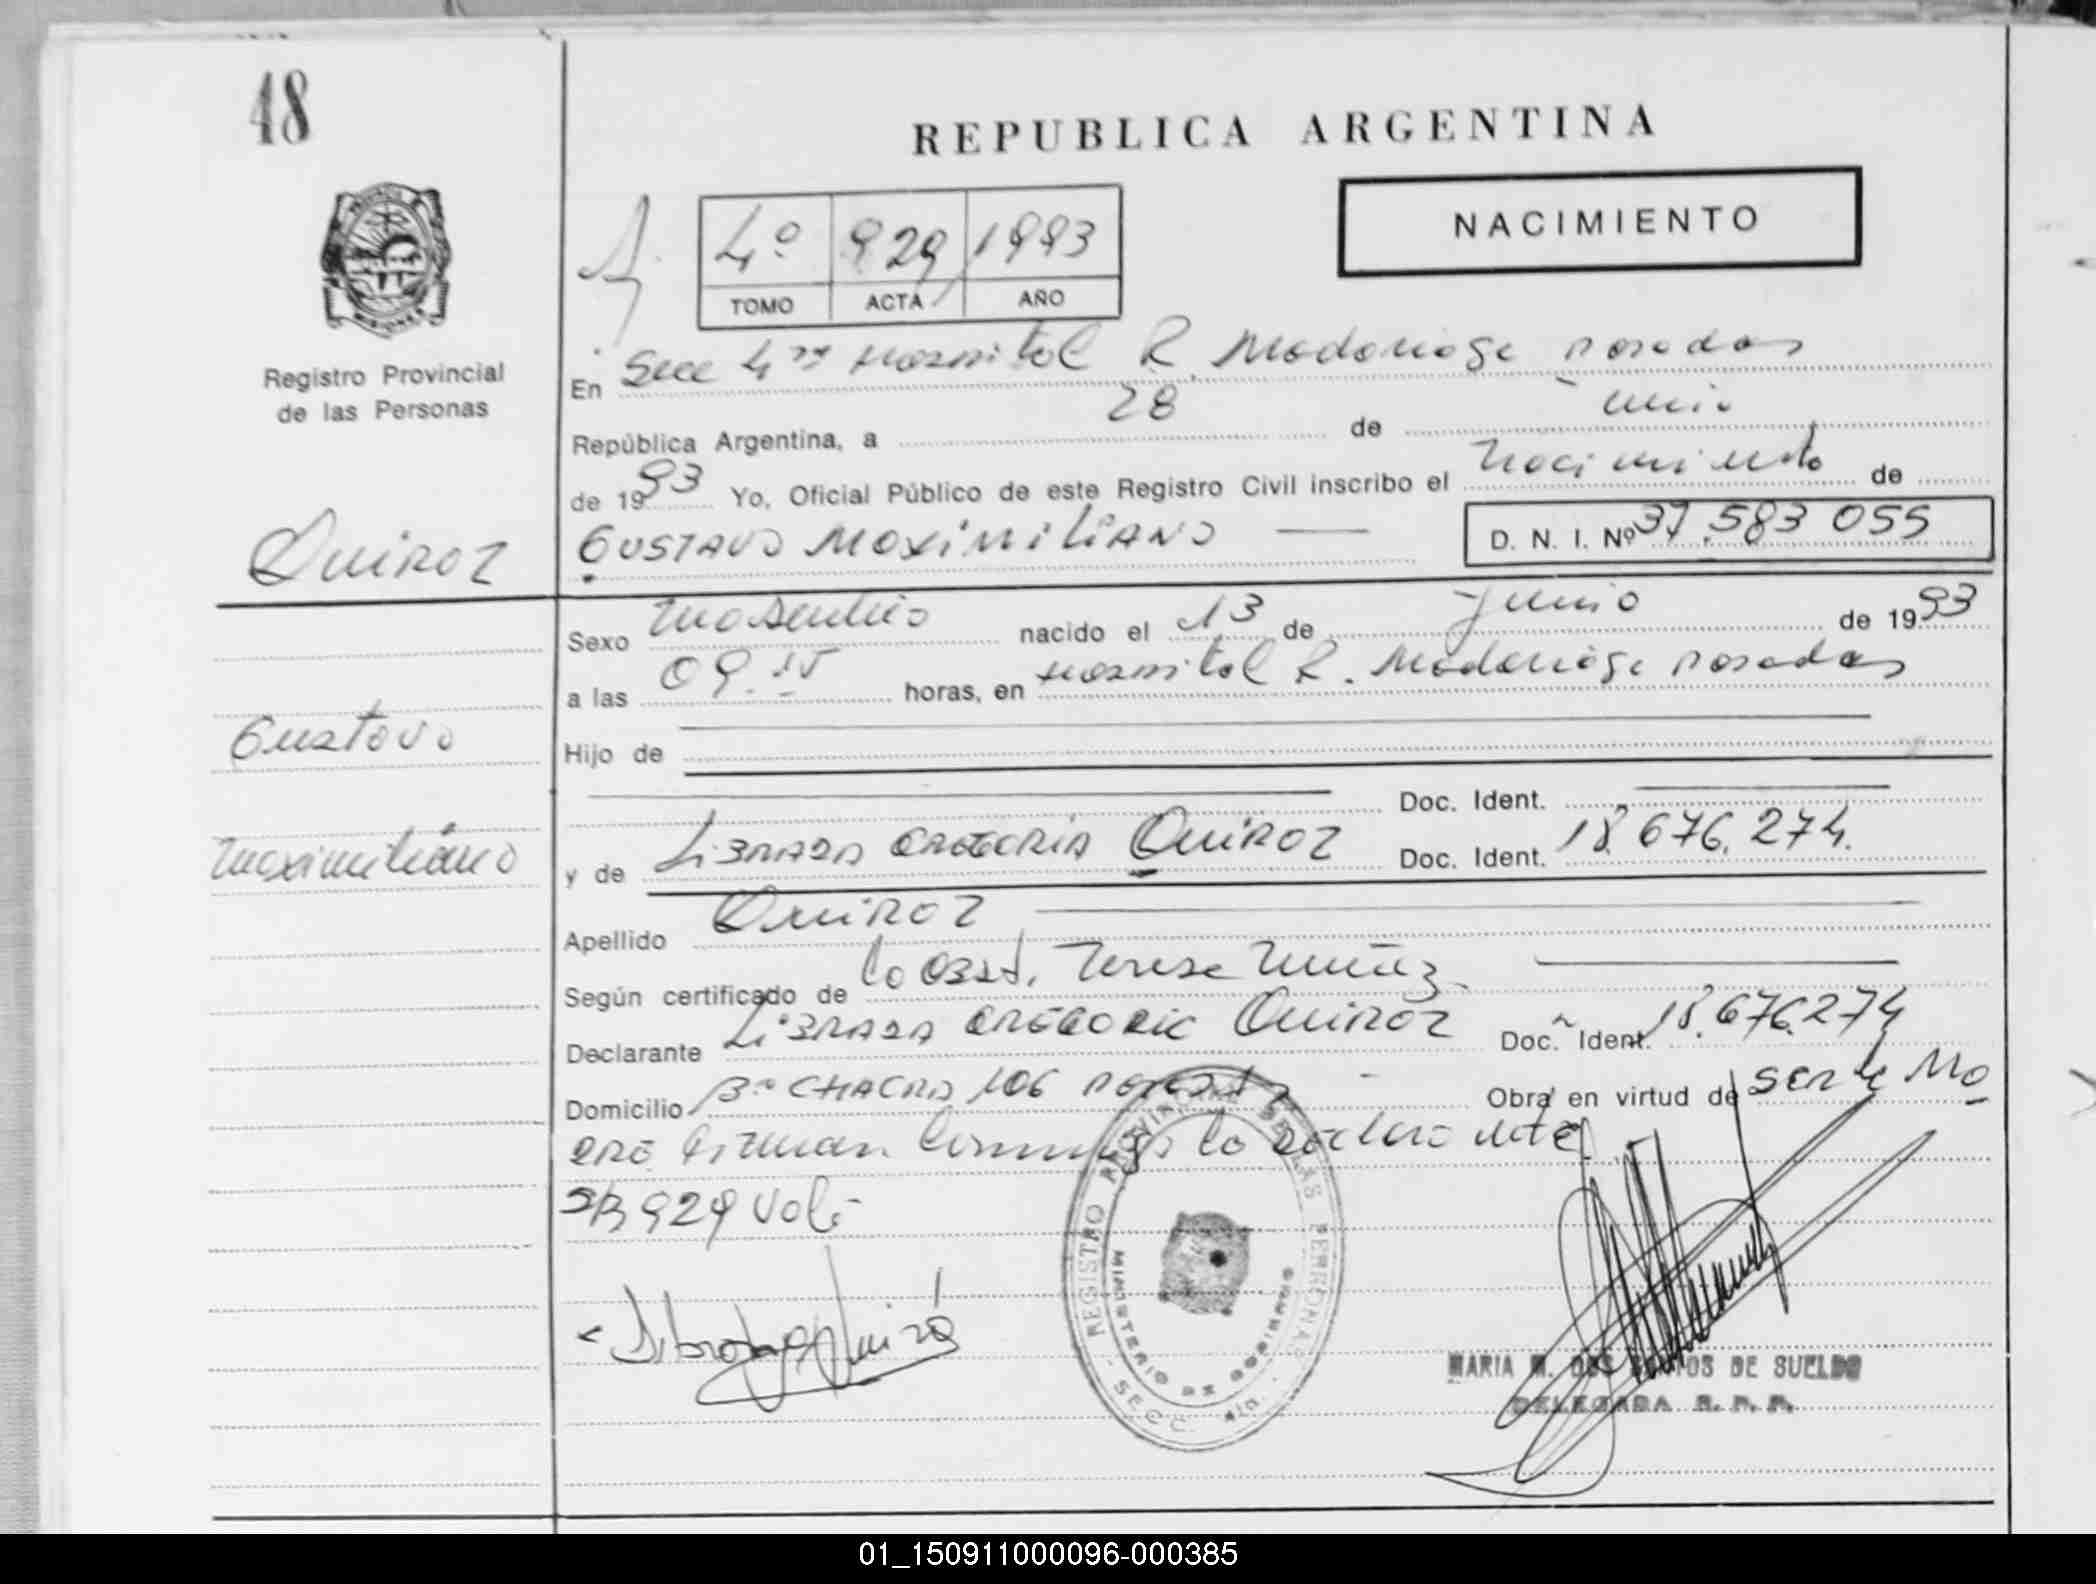 48
REPUBLICA ARGENTINA
NACIMIENTO
4º 929 1993
TOMO ACTA AÑO
Registro Provincial
de las Personas
En Secc 4ta Hospital R. Madariaga Posadas
República Argentina, a 28 de Junio
de 1993 Yo, Oficial Público de este Registro Civil inscribo el Nacimiento de
Quiroz
GUSTAVO MAXIMILIANO
D. N. I. Nº 37.583 055
Sexo Masculino nacido el 13 de Junio de 1993
a las 09.15 horas, en Hospital R. Madariaga Posadas
Gustavo
Hijo de
Doc. Ident.
Maximiliano
y de Librada Gregoria Quiroz Doc. Ident. 18.676.274.
Apellido Quiroz
Según certificado de la Obst. Teresa Muñoz
Declarante Librada Gregoria Quiroz Doc. Ident. 18.676.274
Domicilio Bº CHACRA 106 Obra en virtud de ser la Ma
dre Firman Conmigo la Declarante
S/R 929 Vale
REGISTRO PROVINCIAL DE LAS PERSONAS
MINISTERIO DE GOBIERNO
SECC. 4ta.
MARIA M. DOS SANTOS DE SUELDO
DELEGADA R. P. P.
01_150911000096-000385